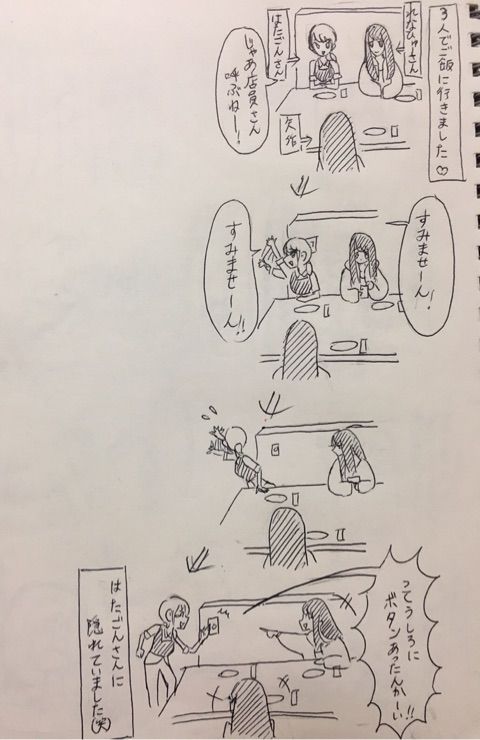 3人でご飯に行きました♡
れなぴょーさん
はたごんさん
じゃあ店員さん
呼ぶねー!
すみませーん!
すみませーん!!
ってうしろに
ボタンあったんかーい!!
はたごんさんに
隠れていました(笑)